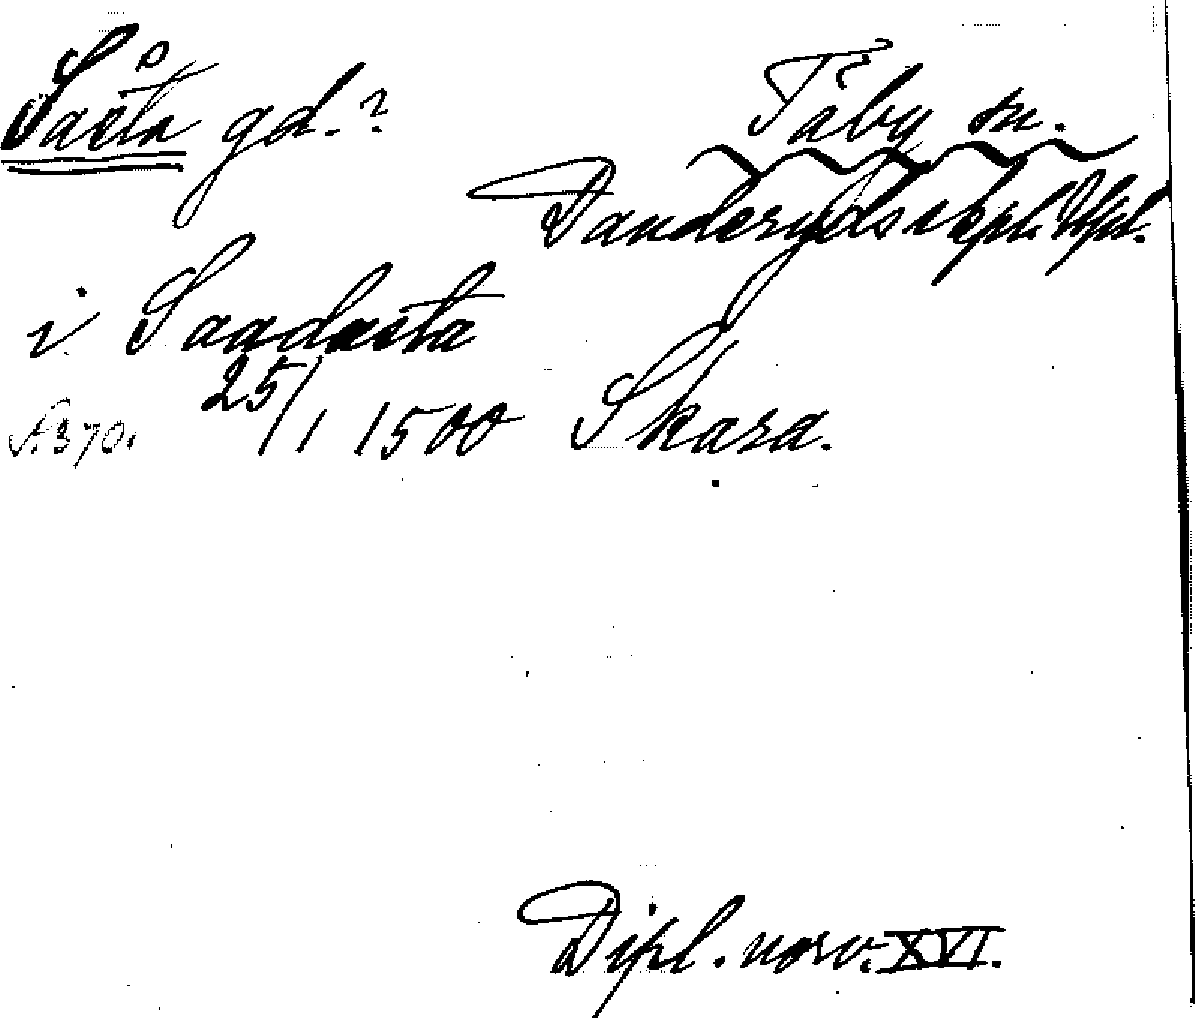 Såsta gd.?
Täby sn.
Danderyds skpl. Upl.
i Saadasta
25/1 1500 Skara.
A. 370.
Dipl. norv. XVI.